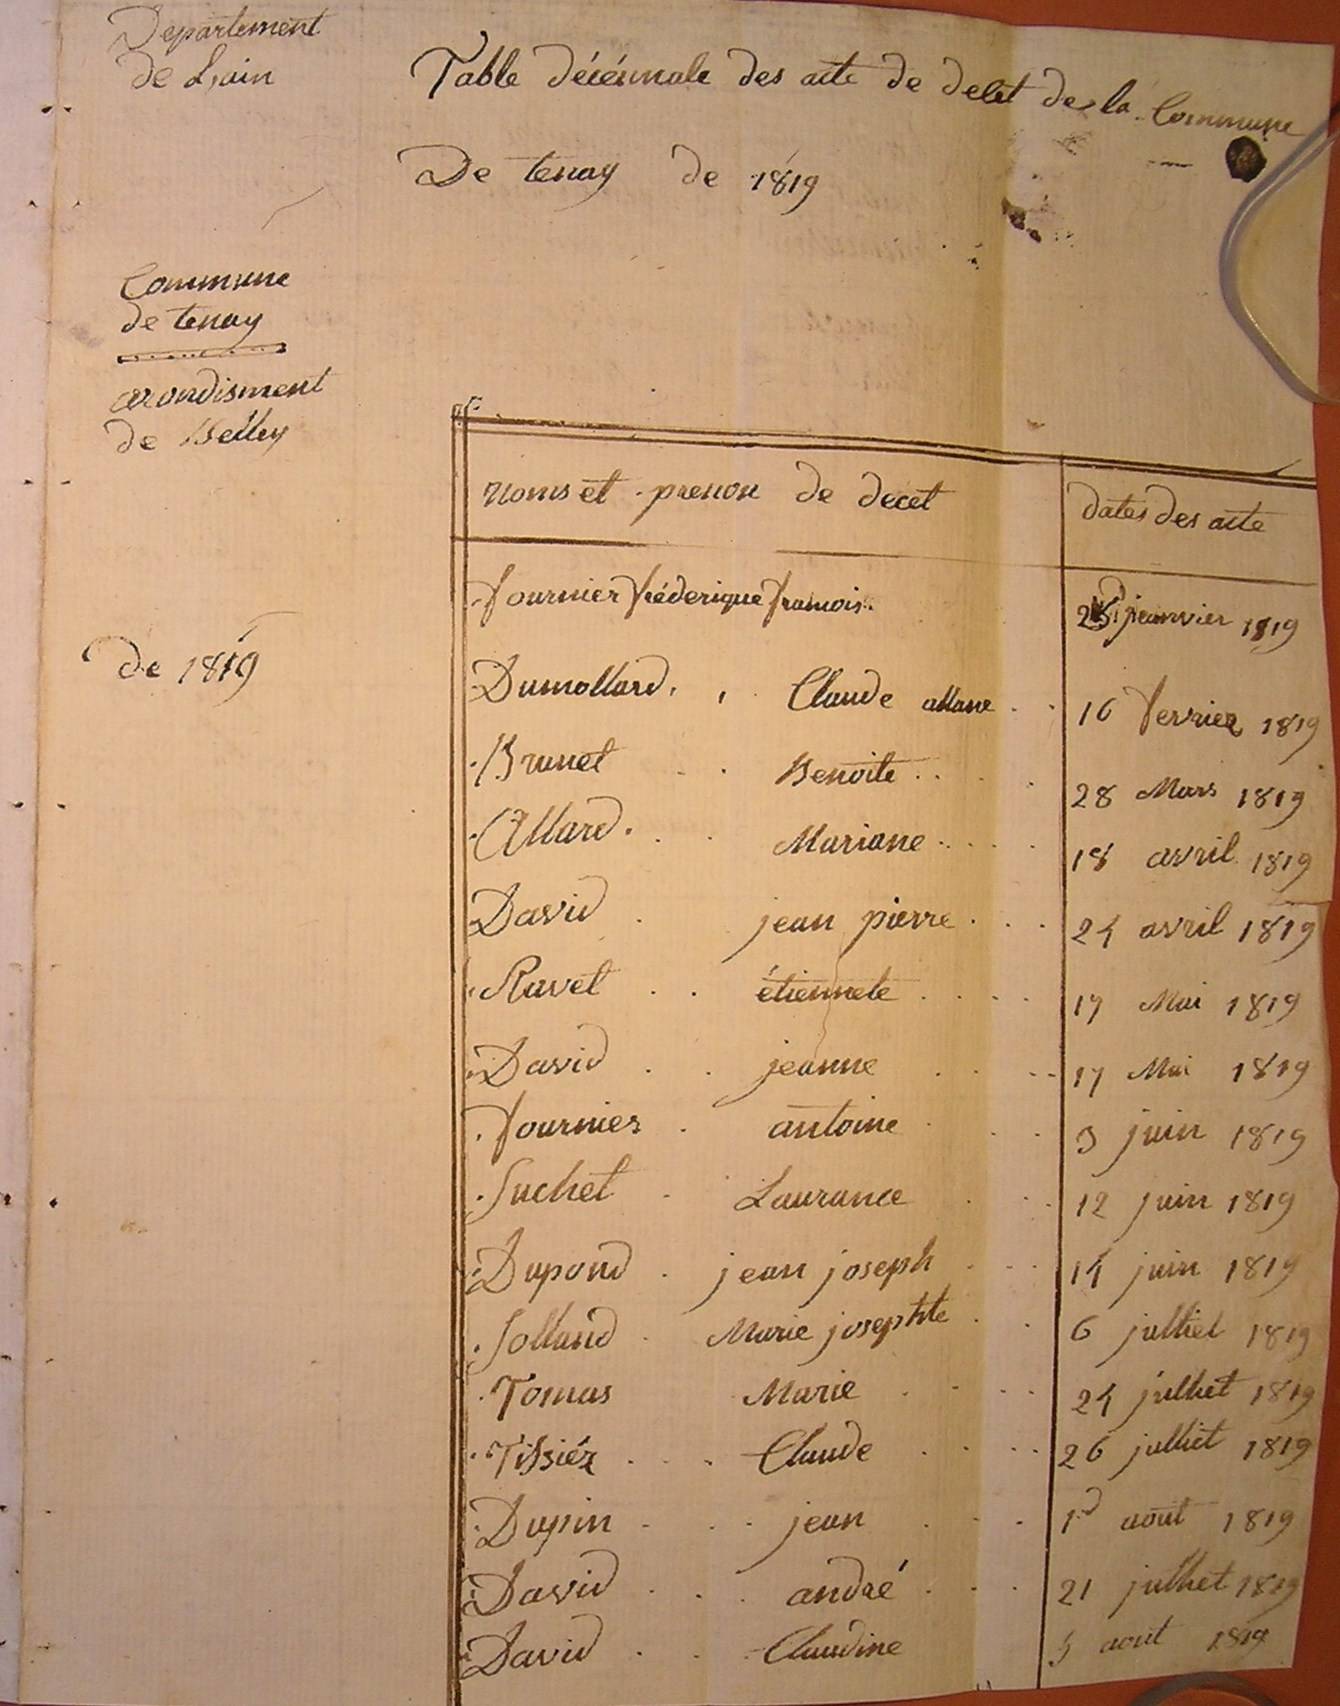 Departement
de L'ain
Table décénnale des acte de decet de la Commune
De tenay de 1819
Commune
de tenay
arondisment
de Belley
noms et prenon de decet dates des acte
de 1819
Fournier fréderique francois janvier 1819
Dumollard Claude allane 16 fevrier 1819
Brunet Benoite 28 Mars 1819
Allard Mariane 18 avril 1819
David jean pierre 24 avril 1819
Ravet étiennete 17 Mai 1819
David jeanne 17 Mai 1819
fournier antoine 3 juin 1819
Suchet Laurance 12 juin 1819
Dupond jean joseph 14 juin 1819
Jolland Marie josephte 6 julliet 1819
Tomas Marie 24 julliet 1819
Tissiér Claude 26 julliet 1819
Dupin jean 1d aout 1819
David andré 21 julliet 1819
David Claudine 5 aout 1819